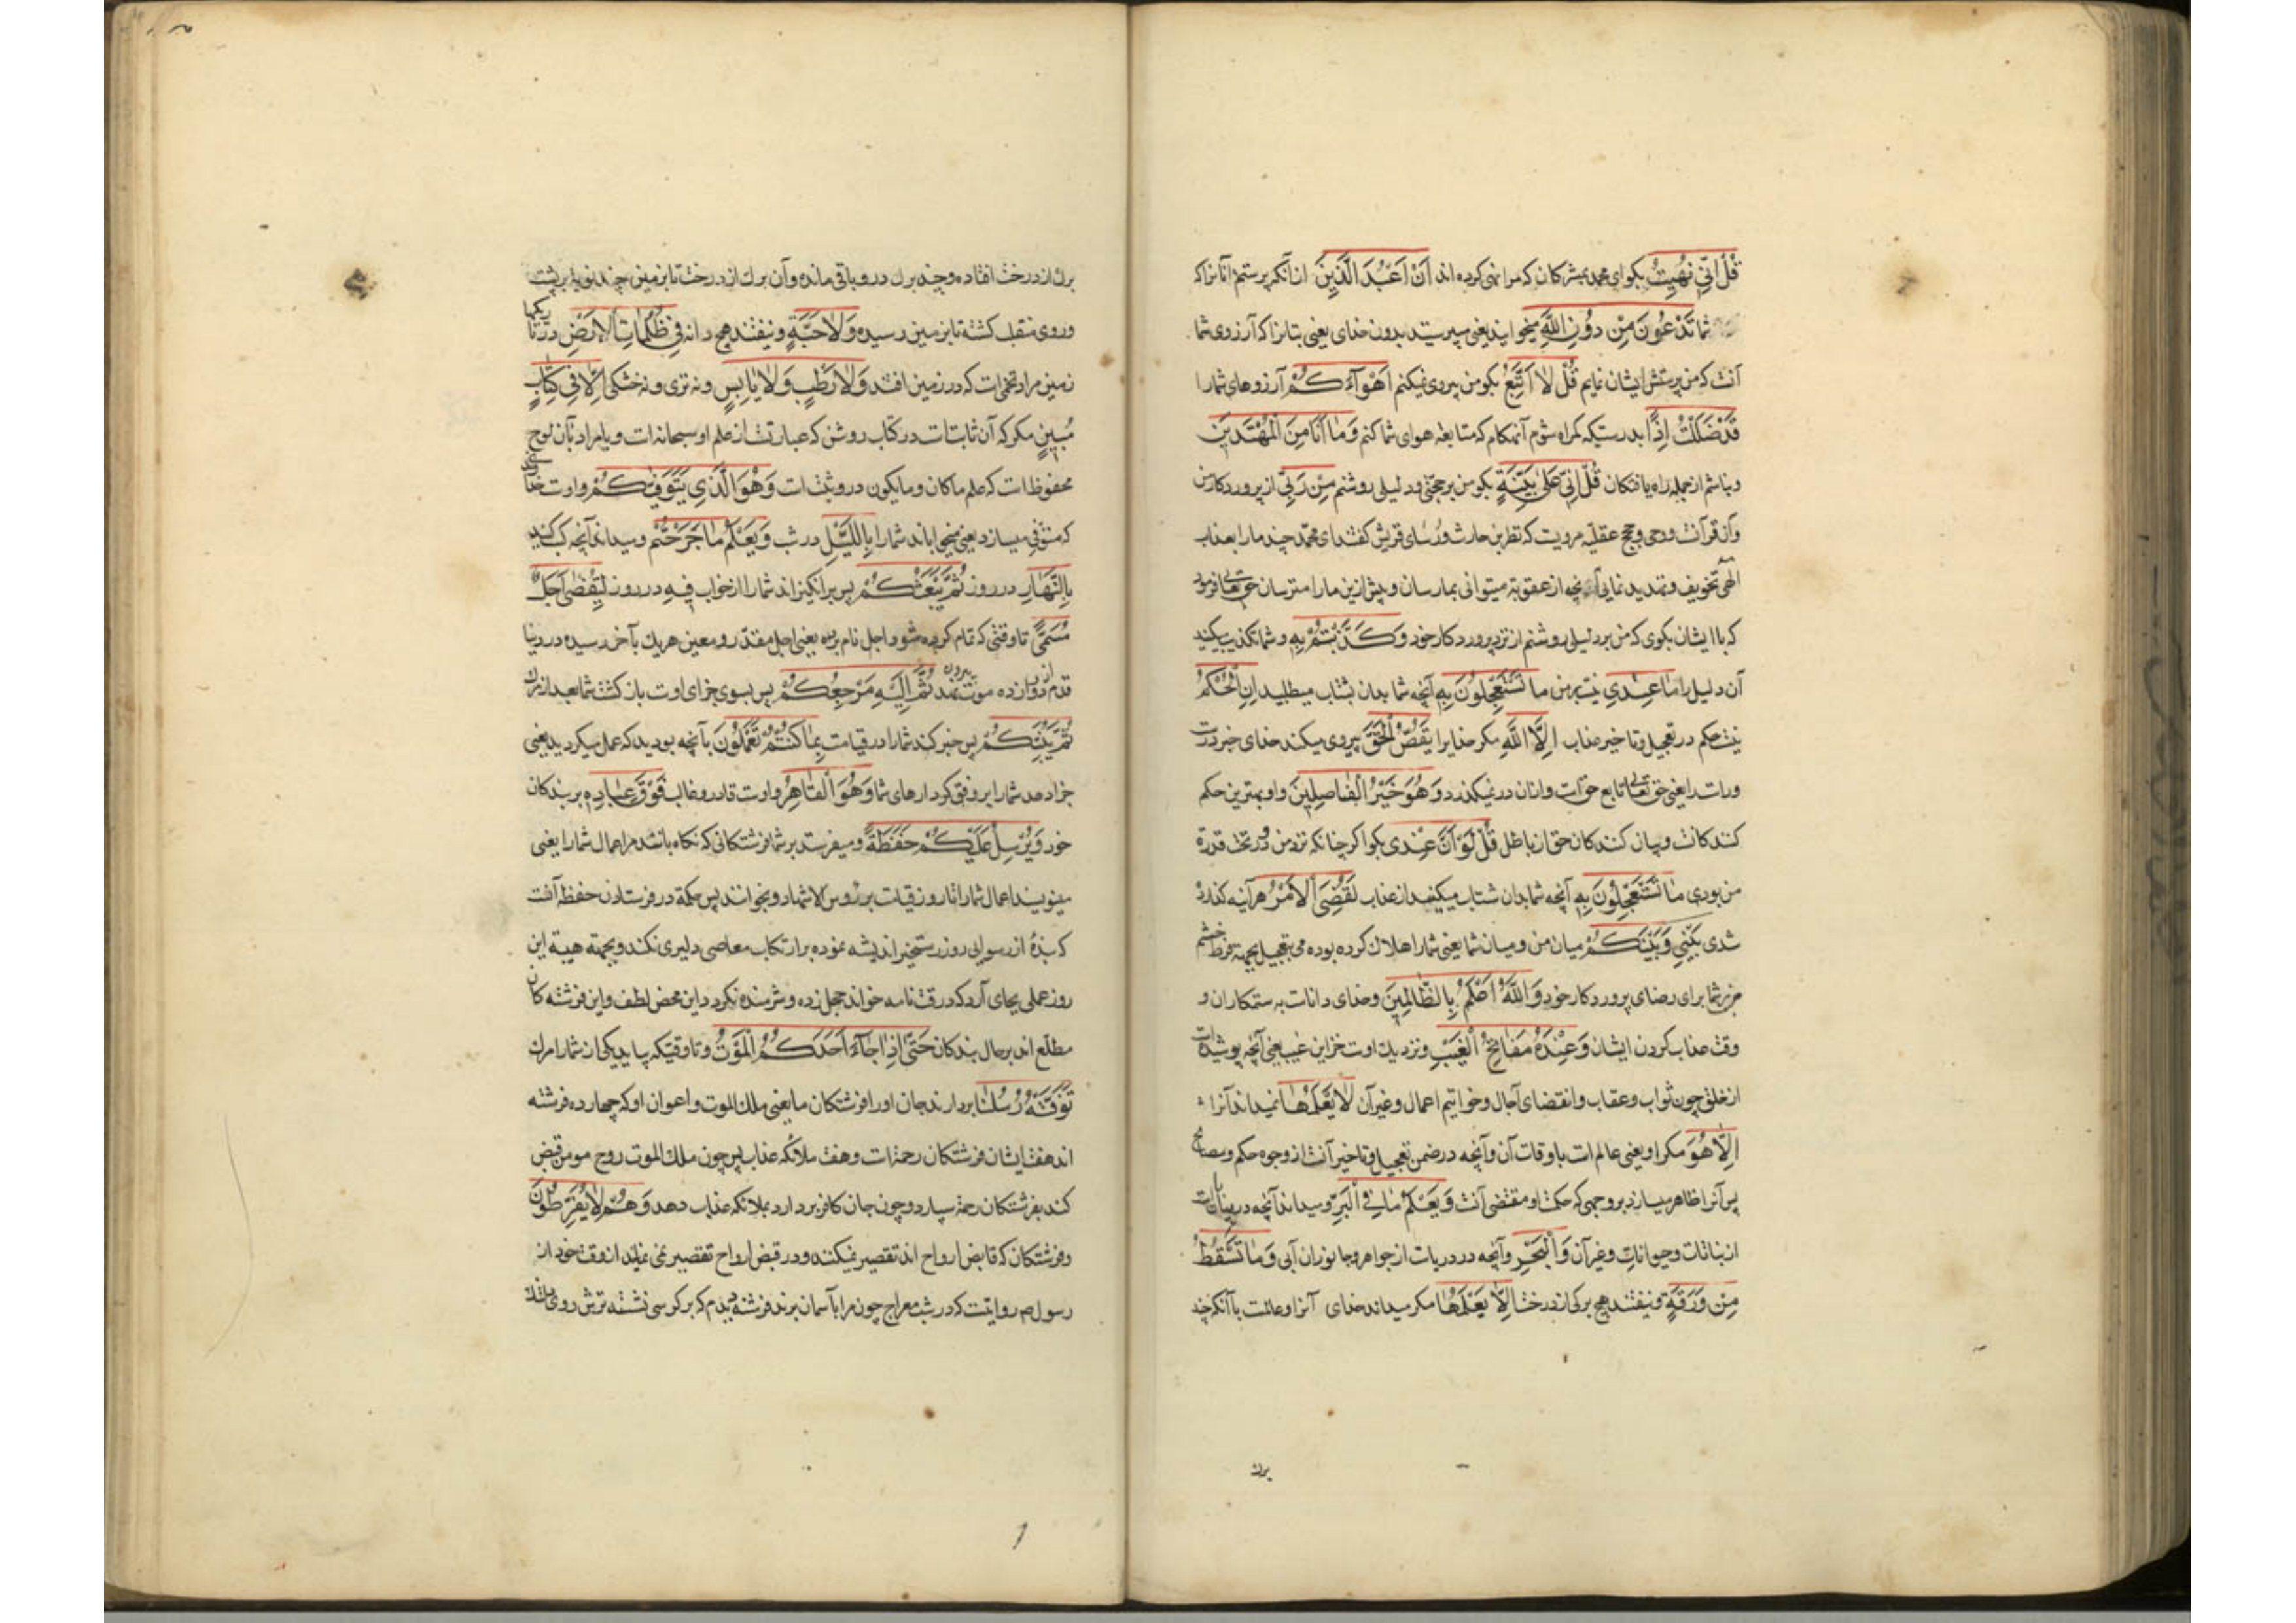 قُلْ اِنِّي نُهِيتُ بگوای محمد بمشرکان که مرا نهی کرده اند اَنْ اَعْبُدَ الَّذِينَ از آنکه پرستم آنانرا که
شما تَدْعُونَ مِنْ دُونِ اللَّهِ میخوانید یعنی میپرستید بدون خدای یعنی بتانرا که آرزوی شما
آنست که من پرستش ایشان نمایم قُلْ لا اَتَّبِعُ بگو من پیروی نمیکنم اَهْوَآءَكُمْ آرزوهای شما را
قَدْ ضَلَلْتُ اِذًا بدرستیکه گمراه شوم آنهنگام که متابعه هوای شما کنم وَمَا اَنَا مِنَ الْمُهْتَدِينَ
و نباشم از جمله راه یافتگان قُلْ اِنِّي عَلىٰ بَيِّنَةٍ بگو من بر حجتی و دلیلی روشنم مِنْ رَبِّي از پروردگار من
و آن قرآنست و وحی و حجج عقلیه مرویست که نظر بن حارث و رؤسای قریش گفتند ای محمد چند ما را بعذاب
الهی تخویف و تهدید نمایی آنچه از عقوبة میتوانی بما رسان و پیش ازین ما را مترسان حق تعالی فرمود
که با ایشان بگوی که من بر دلیلی روشنم از نزد پروردگار خود وَكَذَّبْتُمْ بِهِ و شما تکذیب میکنید
آن دلیل را مَا عِنْدِي نیست بر من مَا تَسْتَعْجِلُونَ بِهِ آنچه شما بدان بشتاب میطلبید اِنِ الْحُكْمُ
نیست حکم در تعجیل و تاخیر عذاب اِلَّا اللَّهِ مگر خدایرا يَقُصُّ الْحَقَّ پیروی میکند خدای خبر درست
و راست را یعنی حق تعالی تابع حق است و از آن در نمیگذرد وَهُوَ خَيْرُ الْفَاصِلِينَ و او بهترین حکم
کنندگانست و بیان کنندگان حق از باطل قُلْ لَوْ اَنَّ عِنْدِي بگو اگر چنانکه نزد من و در تحت قدرة
من بودی مَا تَسْتَعْجِلُونَ بِهِ آنچه شما بدان شتاب میکنید از عذاب لَقُضِيَ الْاَمْرُ هر آینه گذارده
شدی بَيْنِي وَبَيْنَكُمْ میان من و میان شما یعنی شما را هلاک کرده بودمی بتعجیل بجهة فرط خشم
من بر شما برای رضای پروردگار خود وَاللَّهُ اَعْلَمُ بِالظَّالِمِينَ و خدای داناست به ستمکاران و
وقت عذاب کردن ایشان وَعِنْدَهُ مَفَاتِحُ الْغَيْبِ و نزدیک اوست خزاین غیب یعنی آنچه پوشیده است
از خلق چون ثواب و عقاب و انقضای آجال و خواتیم اعمال و غیر آن لَا يَعْلَمُهَا نمیداند آنرا
اِلَّا هُوَ مگر او یعنی عالم است باوقات آن و آنچه در ضمن تعجیل و تاخیر آنست از وجوه حکم و مصالح
پس آنرا ظاهر میسازد بر وجهی که حکمت او مقتضی آنست وَيَعْلَمُ مَا فِي الْبَرِّ و میداند آنچه در بیابانست
از نباتات و حیوانات و غیر آن وَالْبَحْرِ و آنچه در دریاست از جواهر و جانوران آبی وَمَا تَسْقُطُ
مِنْ وَرَقَةٍ و نیفتد هیچ برگی از درخت اِلَّا يَعْلَمُهَا مگر میداند خدای آنرا و عالمست بآنکه چند
برك
برك از درخت افتاده و چند برك درو باقی مانده و آن برك از درخت تا بزمین چند نوبة بر پشت
و روی منقلب گشته تا بزمین رسیده وَلَا حَبَّةٍ و نیفتد هیچ دانه فِي ظُلُمَاتِ الْاَرْضِ در تاریکیها
زمین مراد تخمیست که در زمین افتد وَلَا رَطْبٍ وَلَا يَابِسٍ و نه تری و نه خشکی اِلَّا فِي كِتَابٍ
مُبِينٍ مگر که آن ثابتست در کتاب روشن که عبارتست از علم او سبحانه است و یا مراد بآن لوح
محفوظ است که علم ماکان و مایکون درو ثبت است وَهُوَ الَّذِي يَتَوَفّٰيكُمْ و اوست خدای
که متوفی میسازد یعنی میخواباند شما را بِاللَّيْلِ در شب وَيَعْلَمُ مَا جَرَحْتُمْ و میداند آنچه کسب کنید
بِالنَّهَارِ در روز ثُمَّ يَبْعَثُكُمْ پس بر انگیزاند شما را از خواب فِيهِ در روز لِيُقْضىٰ اَجَلٌ
مُسَمًّى تا وقتی که تمام کرده شود اجل نام برده یعنی اجل مقدر و معین هر یك بآخر رسیده در دنیا
ثُمَّ اِلَيْهِ مَرْجِعُكُمْ پس بسوی جزای اوست بازگشت شما بعد از مرك
ثُمَّ يُنَبِّئُكُمْ پس خبر کند شما را در قیامت بِمَا كُنْتُمْ تَعْمَلُونَ بآنچه بودید که عمل میکردید یعنی
جزا دهد شما را بر وفق کردارهای شما وَهُوَ الْقَاهِرُ و اوست قادر و غالب فَوْقَ عِبَادِهِ بر بندگان
خود وَيُرْسِلُ عَلَيْكُمْ حَفَظَةً و میفرستد بر شما فرشتگانی که نگاه باشند مر اعمال شما را یعنی
مینویسند اعمال شما را تا روز قیامت بر رؤس الاشهاد و بخوانند پس حکمة در فرستادن حفظه آنست
که بندهٔ از رسوایی روز رستخیز اندیشه نموده بر ارتکاب معاصی دلیری نکند و بجهة هیبة این
روز عملی بجای آرد که در وقت نامه خواند خجل زده و شرمنده نگردد این محض لطف و این فرشته کان
مطلع اند بر حال بندگان حَتّٰى اِذَا جَآءَ اَحَدَكُمُ الْمَوْتُ و تا وقتیکه بیاید یکی از شما را مرك
تَوَفَّتْهُ رُسُلُنَا بردارند جان او را فرشتگان ما یعنی ملك الموت و اعوان او که چهارده فرشته
اند هفت ایشان فرشتگان رحمت است و هفت ملائکه عذاب پس چون ملك الموت روح مومن قبض
کند بفرشتگان رحمة سپارد و چون جان کافر بردارد بملائکه عذاب دهد وَهُمْ لَا يُفَرِّطُونَ
و فرشتگان که قابض ارواح اند تقصیر نمیکنند و در قبض ارواح تقصیر نمی نمایند از وقت خود از
رسول ص روایتست که در شب معراج چون مرا بآسمان بردند فرشته دیدم که بر کرسی نشسته ترش روی مانند